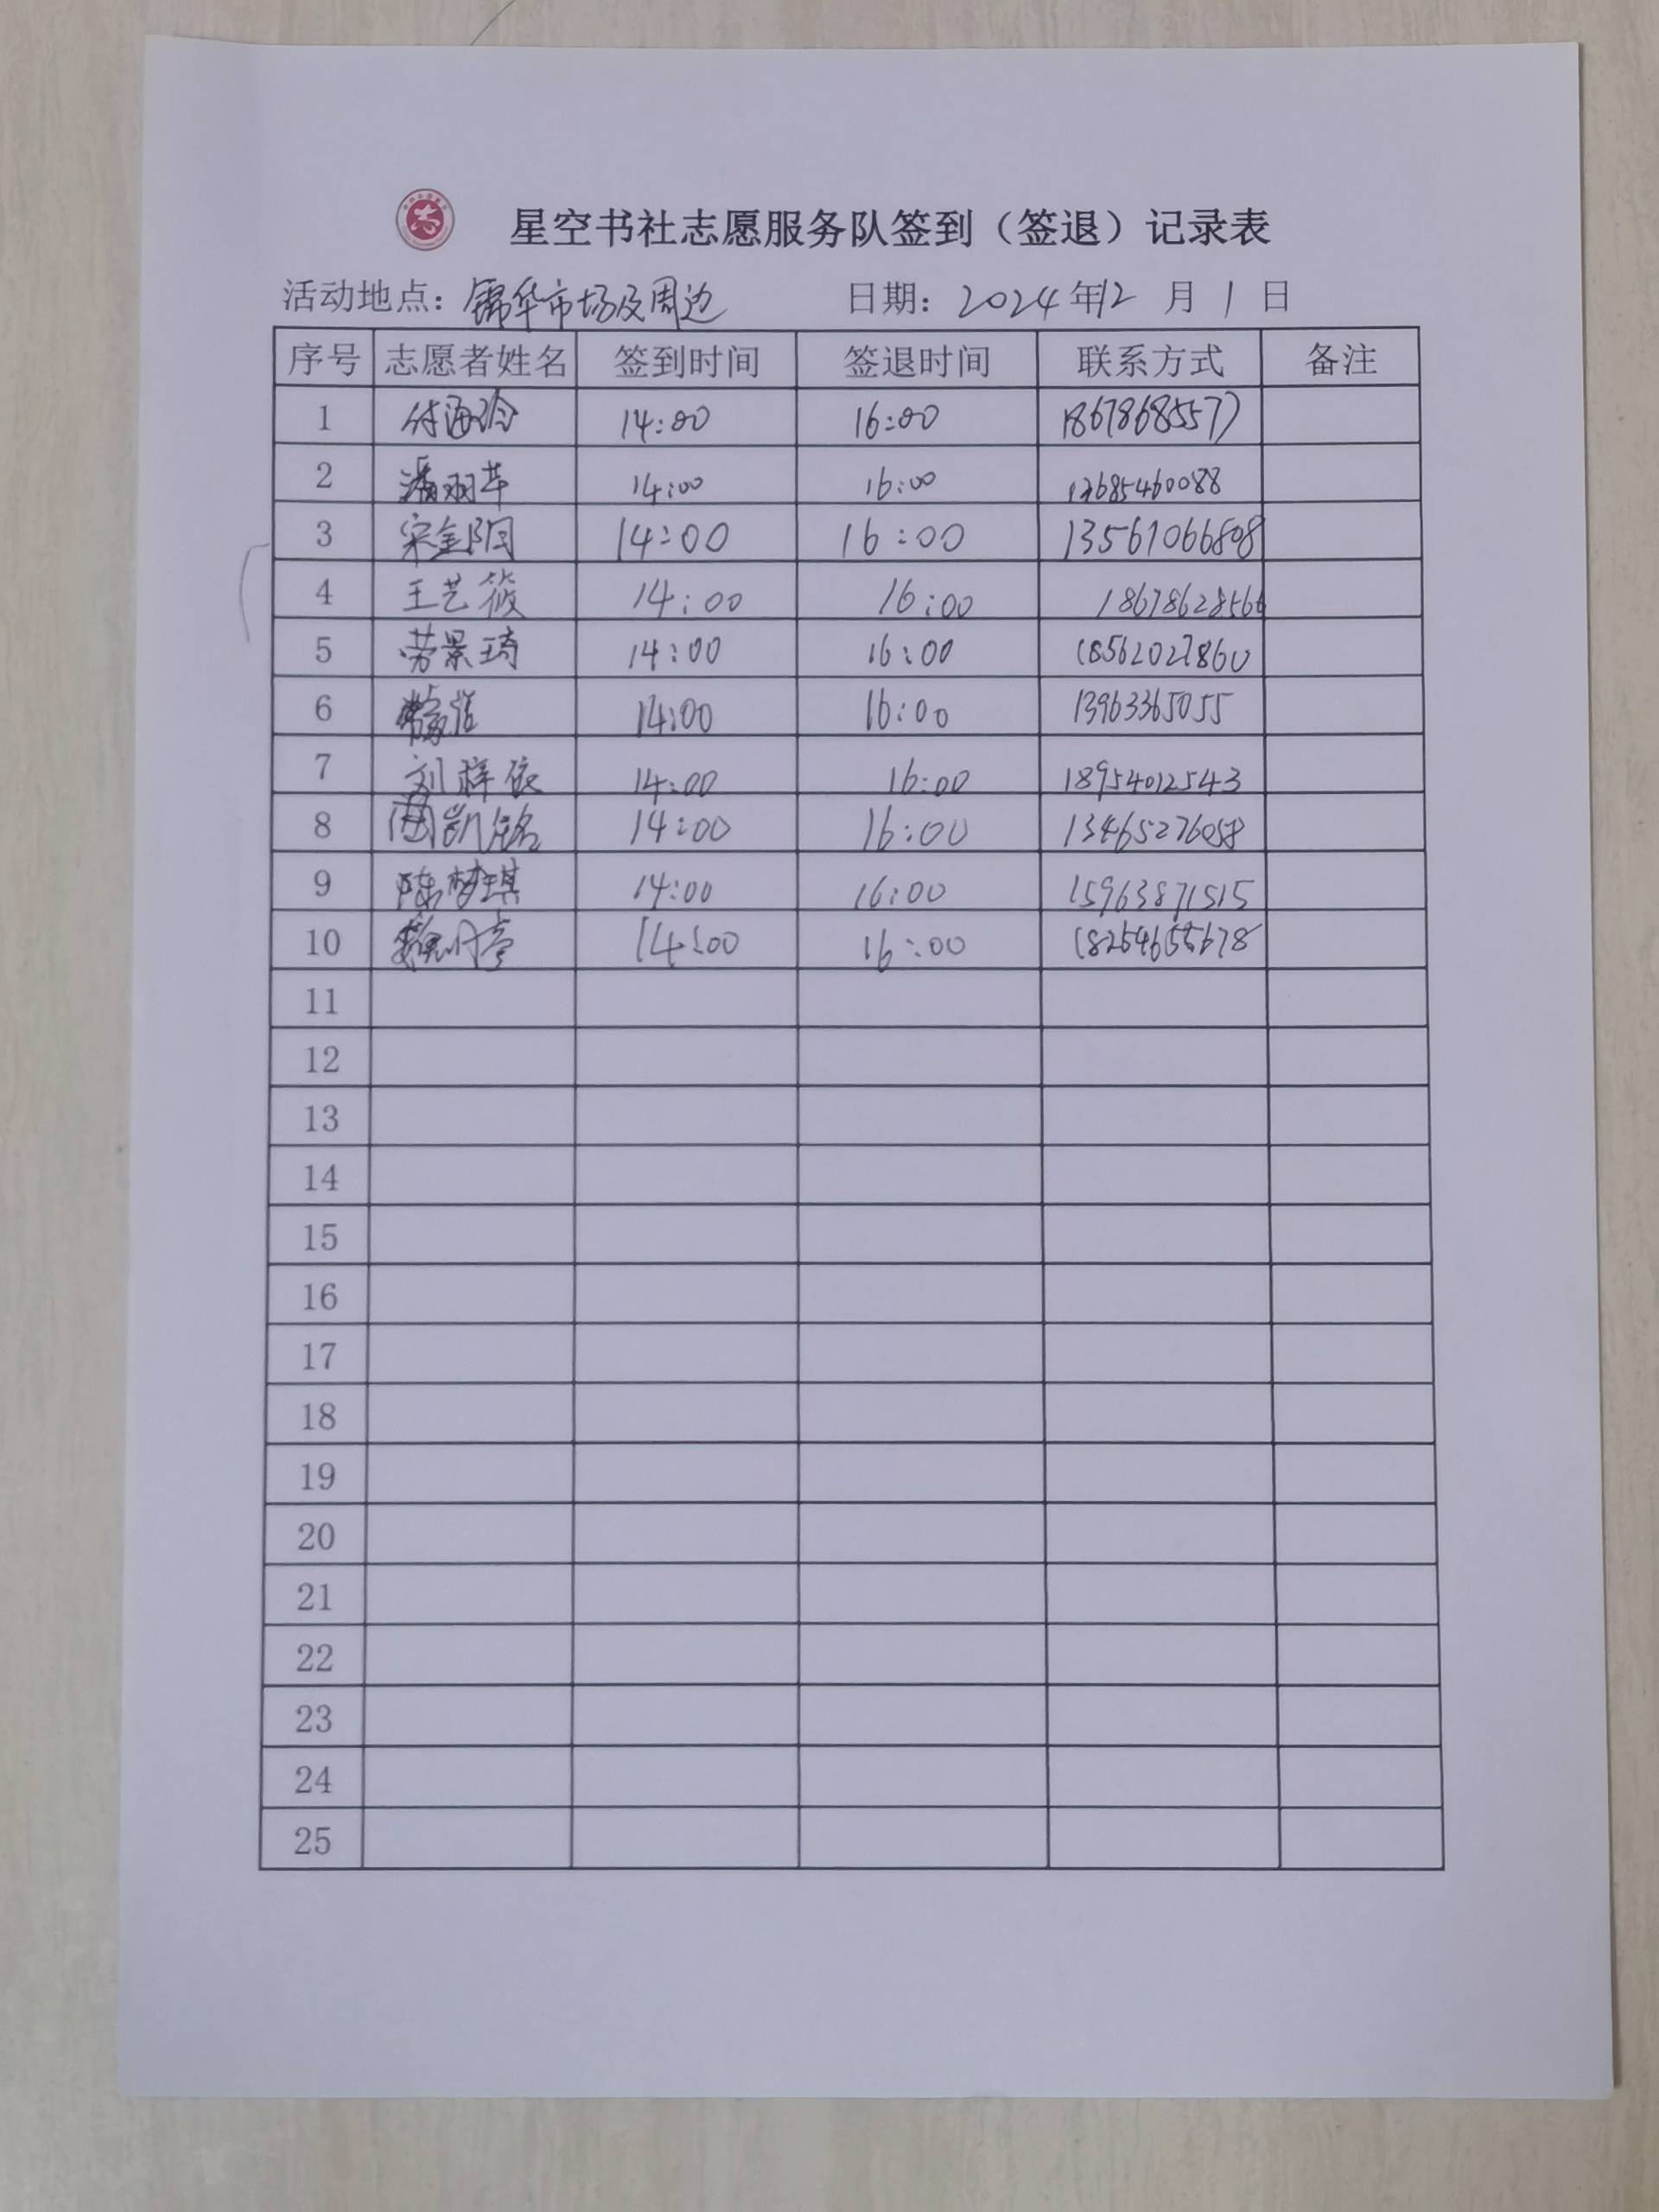 志
星空书社志愿服务队签到（签退）记录表
活动地点：锦华市场及周边 日期：2024年12月1日
序号 志愿者姓名 签到时间 签退时间 联系方式 备注
1 付海玲 14:00 16:00 18678685577
2 潘羽苹 14:00 16:00 13685460088
3 宋金阳 14:00 16:00 13561066808
4 王艺筱 14:00 16:00 18678628566
5 劳景琦 14:00 16:00 18562027860
6 14:00 16:00 13963365055
7 刘梓依 14:00 16:00 18954012543
8 周凯铭 14:00 16:00 13465276058
9 陈梦琪 14:00 16:00 15963871515
10 14:00 16:00
11
12
13
14
15
16
17
18
19
20
21
22
23
24
25